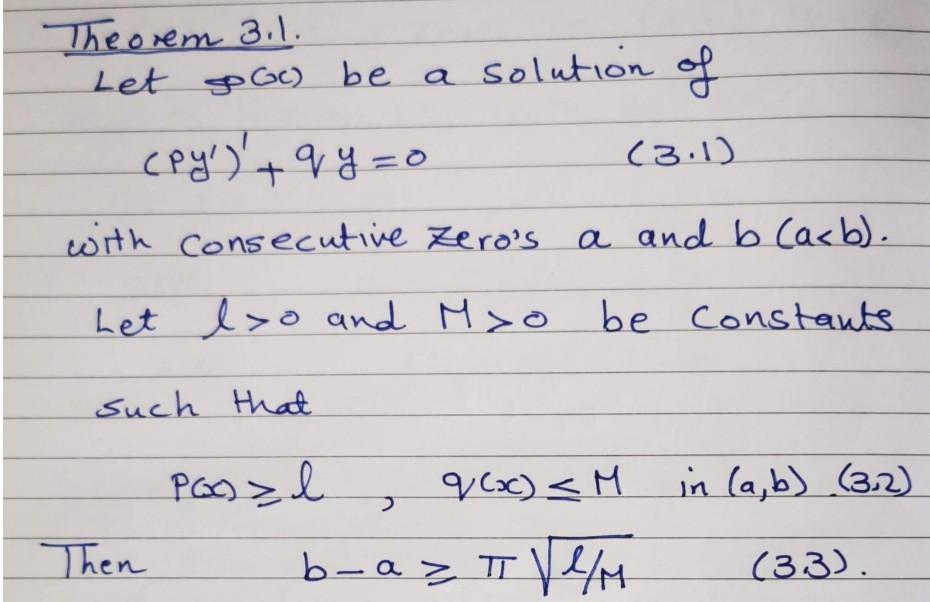 Theorem 3.1.
Let y(x) be a solution of
(py')' + qy = 0 (3.1)
with consecutive zero's a and b (a<b).
Let l>0 and M>0 be constants
such that
P(x) ≥ l , q(x) ≤ M in (a,b) (3.2)
Then b-a ≥ π √l/M (3.3).